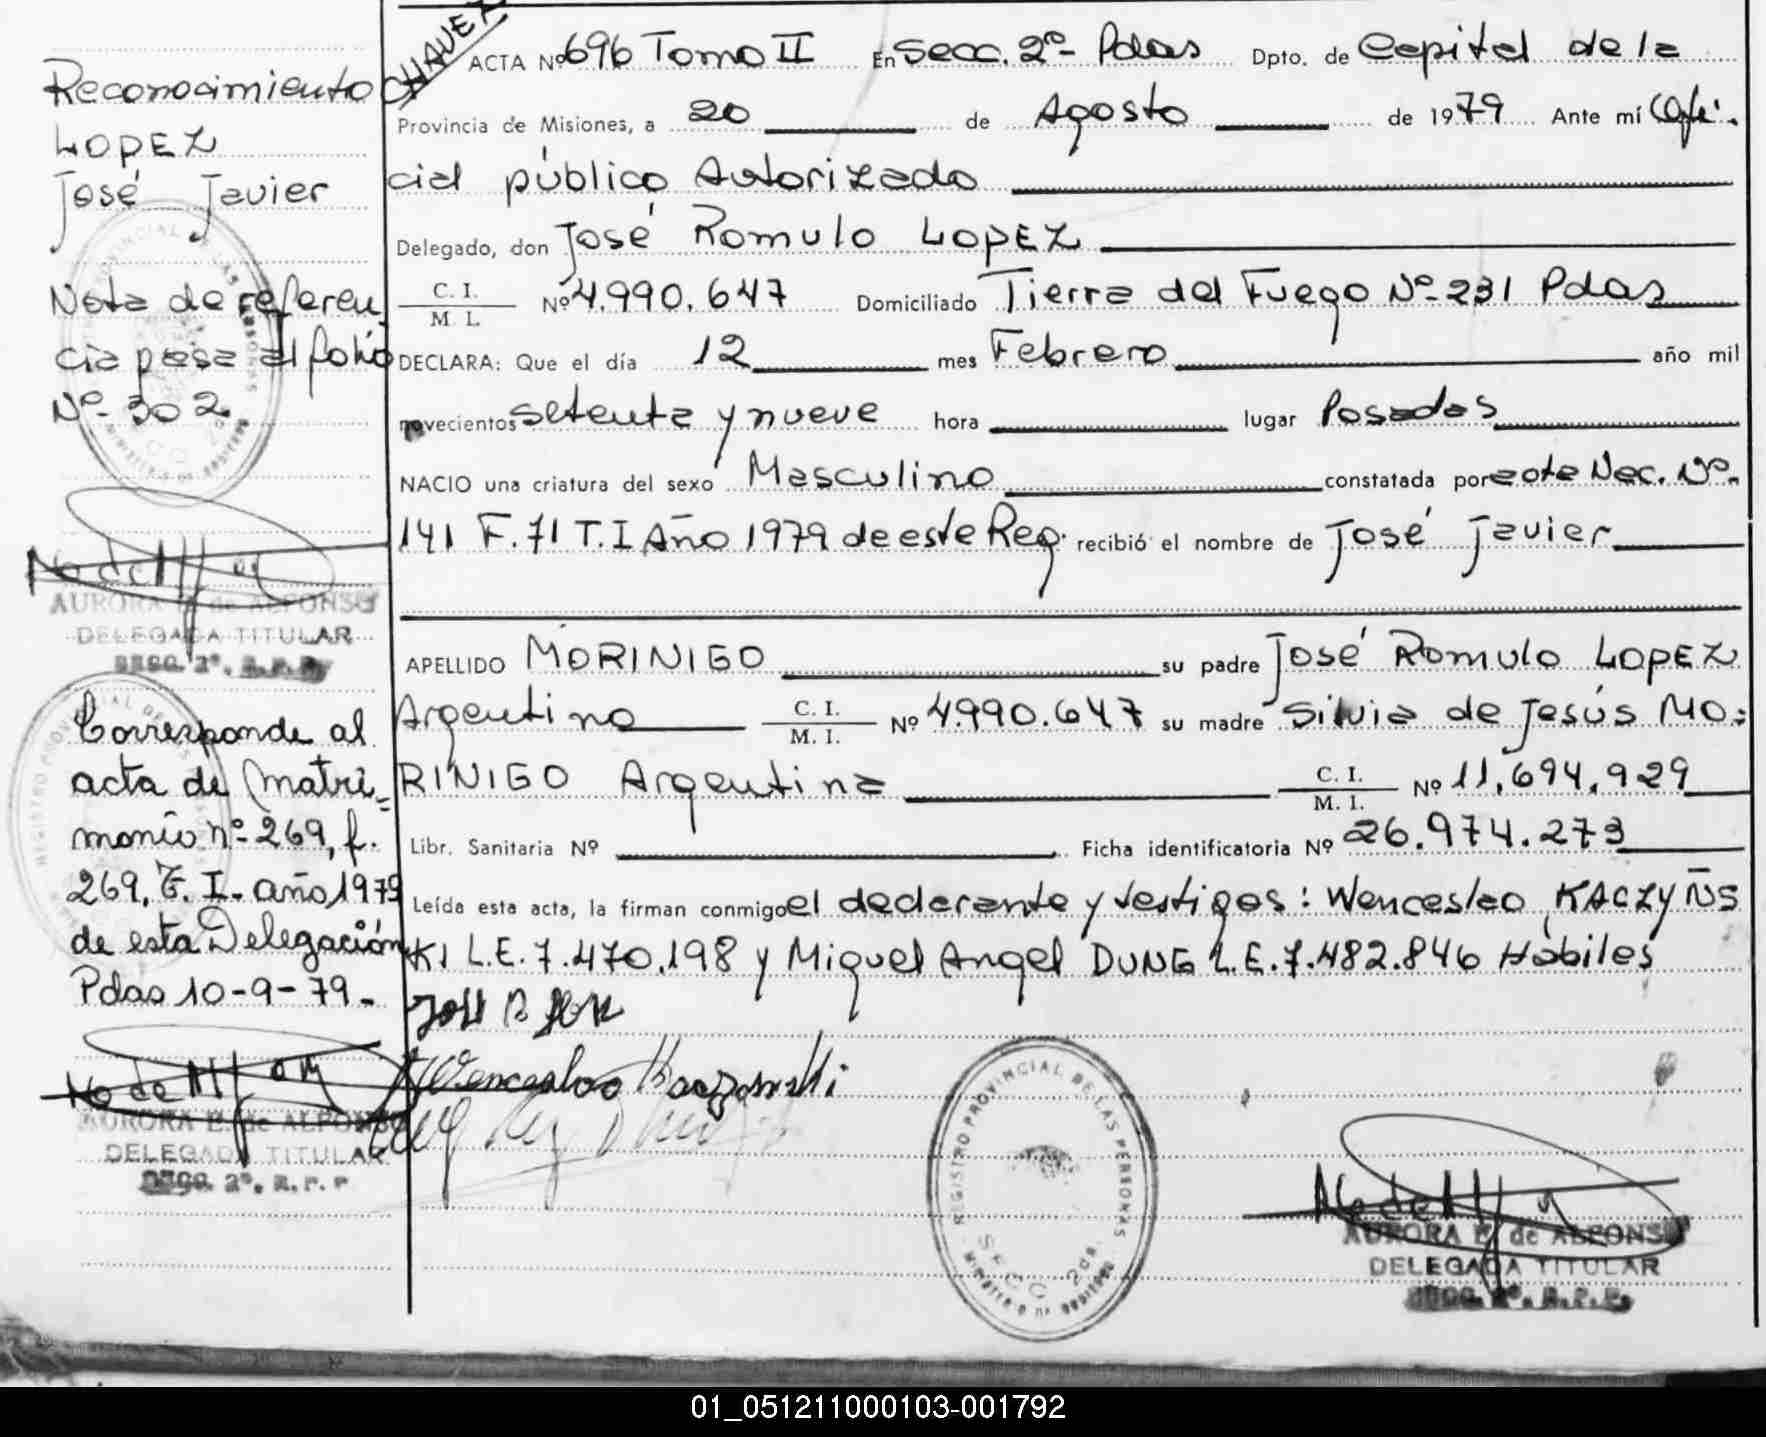 CHAVEZ
ACTA Nº 696 Tomo II En Secc. 2º- Pdas Dpto. de Capital de la
Provincia de Misiones, a 20 de Agosto de 1979 Ante mí Ofi-
cial público Autorizado
Delegado, don José Romulo LOPEZ
C. I.
M. I. Nº 4.990.647 Domiciliado Tierra del Fuego Nº-231 Pdas
DECLARA: Que el día 12 mes Febrero año mil
novecientos setenta y nueve hora lugar Posadas
NACIO una criatura del sexo Masculino constatada por acta Nac. Nº-
141 F. 71 T. I Año 1979 de este Reg. recibió el nombre de José Javier
APELLIDO MORINIGO su padre José Romulo LOPEZ
Argentino C. I.
M. I. Nº 4.990.647 su madre Silvia de Jesús MO-
RINIGO Argentina C. I.
M. I. Nº 11.694.929
Libr. Sanitaria Nº Ficha identificatoria Nº 26.974.273
Leída esta acta, la firman conmigo el declarante y testigos: Wenceslao KACZYÑS
KI L.E. 7.470.198 y Miguel Angel DUNG L.E. 7.482.846 Hábiles
Wenceslao Kaczynski
REGISTRO PROVINCIAL DE LAS PERSONAS
SECC 2da.
AURORA E. de ALFONSO
DELEGADA TITULAR
SECC. 2º. R.P.P.
Reconocimiento
LOPEZ
José Javier
Nota de referen
cia pasa al folio
Nº- 302
AURORA E. de ALFONSO
DELEGADA TITULAR
SECC. 2º. R.P.P.
Corresponde al
acta de Matri-
monio nº-269, f.
269, T. I. año 1979
de esta Delegación
Pdas 10-9-79.-
AURORA E. de ALFONSO
DELEGADA TITULAR
SECC. 2º. R.P.P
01_051211000103-001792